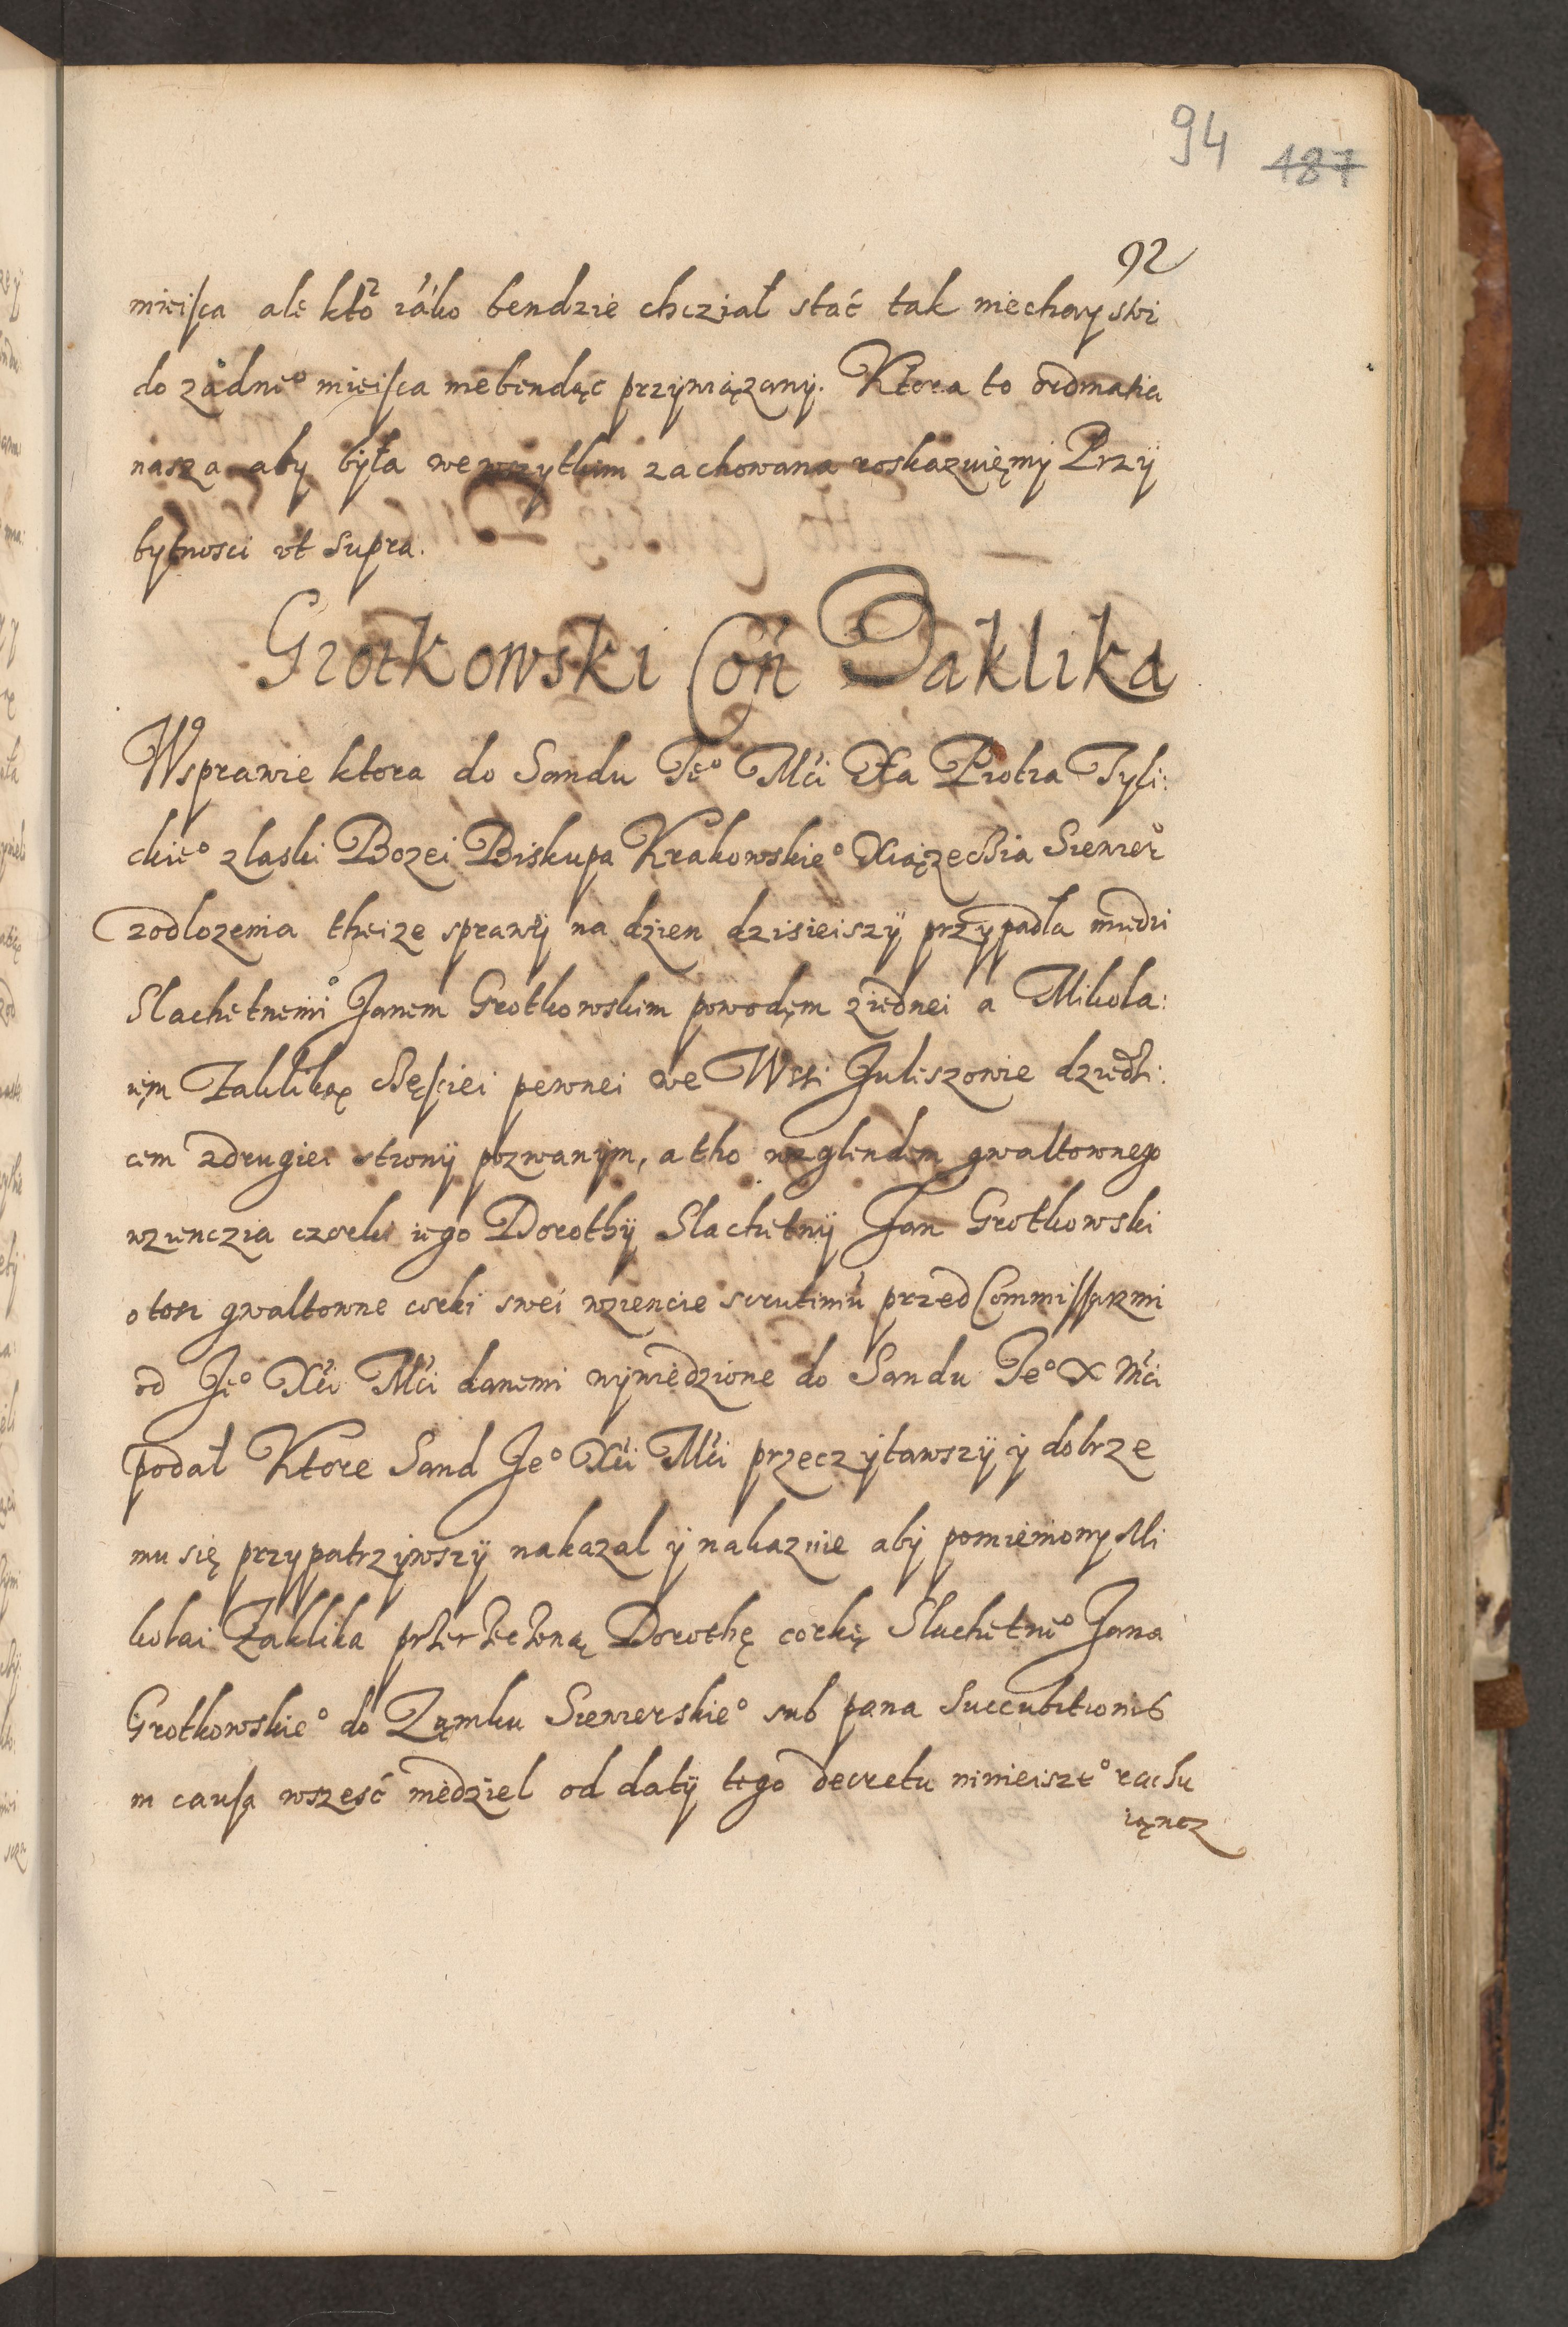 94 187
92
mieisca ale kto iako bendzie chcział stać tak niechay stoi
do zadne° mieisca niebendąc przywiązany. Ktora to ordinatia
nasza aby była wewszytkim zachowana roskazuięmÿ Przÿ
bytnosci vt supra.
Grotkowski Con Zaklika
Wsprawie ktora do Sandu Je° Mći Xa Piotra Tyli:
ckie° zlaski Bozei Biskupa Krakowskie° Xiązęcia Siewier
zodlozenia theize sprawÿ na dzien dzisieiszÿ przÿpadla miedzi
Slachetnemi Janem Grotkowskim powodęm ziednei a Mikola:
ięm Zaklikąę częsciei pewnei we Wsi Juliszowie dziedzi:
cem zdrugiei stronÿ pozwanÿm, a tho wzglendem gwaltownego
wzienczia czorki iego Dorothÿ Slachetnÿ Jan Grotkowski
o tosz gwaltowne corki swei wziencie scrutiniu przed Commissarzmi
od Je° Xći Mći danemi wÿwiedzione do Sandu Je° X Mći
podał Ktore Sand Je° Xći Mći przeczÿtawszÿ ÿ dobrze
mu się przÿpatrzÿwszÿ nakazal ÿ nakazuie abÿ pomieniony Mi
kołai Zaklika przerzeczoną Dorothę corkę Slachetne° Jana
Grotkowskie° do Zamku Siewierskie° sub pæna succubitionis
in causa wszesć niedziel od datÿ tego decretu ninieisze° rachu
iąncz